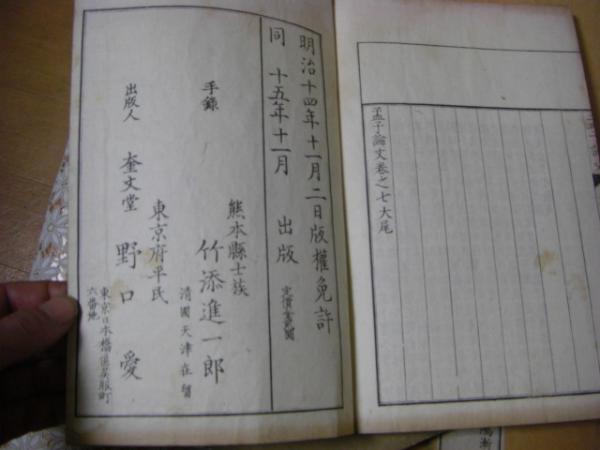 孟子論文卷之七大尾
明治十四年十一月二日版權免許
同 十五年十一月 出版
熊本縣士族
手錄 竹添進一郎
清國天津在留
東京府平民
出版人 奎文堂 野口愛
東京日本橋區吳服町
六番地